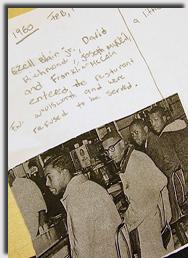 1960
FEB, 1
a little
Ezell Blair Jr., David
Richmond, Joseph McNeil,
and Franklin McCain
entered the restaurant
woolsworth and were
refused to be served.